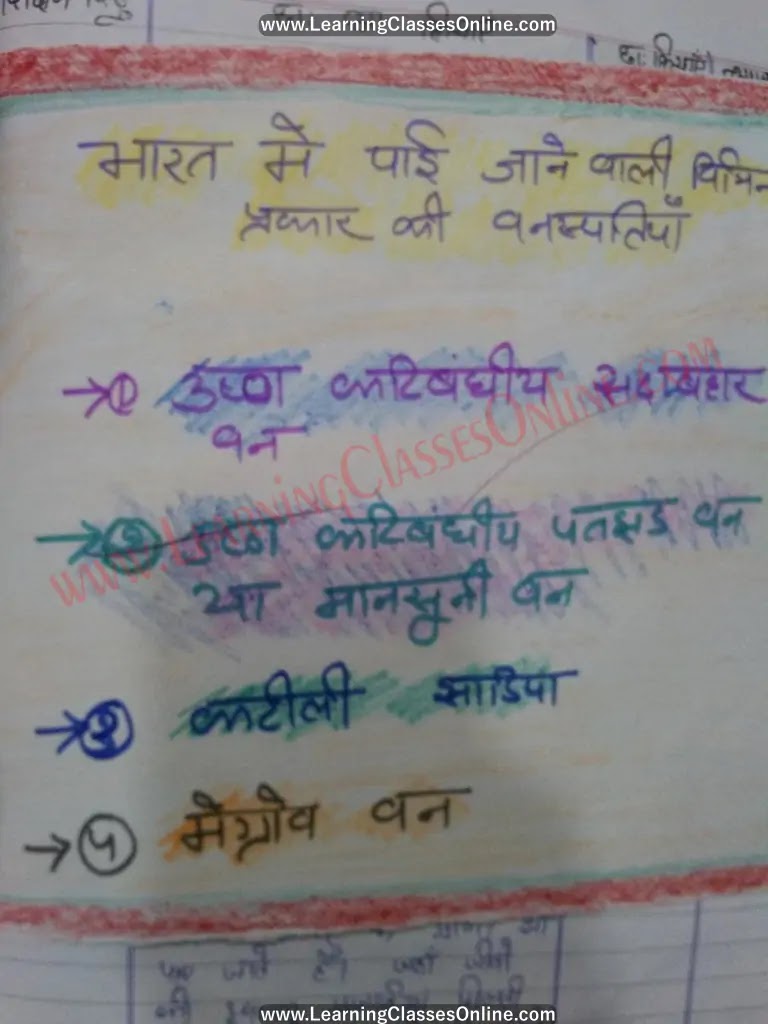 www.LearningClassesOnline.com
भारत मे पाई जाने वाली विभिन
प्रकार की वनस्पतियाँ
→① उष्ण कटिबंधीय सदाबहार
वन
→② उष्ण कटिबंधीय पतझड वन
या मानसुनी वन
→③ कटीली झाडिया
→④ मेग्रोव वन
www.LearningClassesOnline.com
www.LearningClassesOnline.com